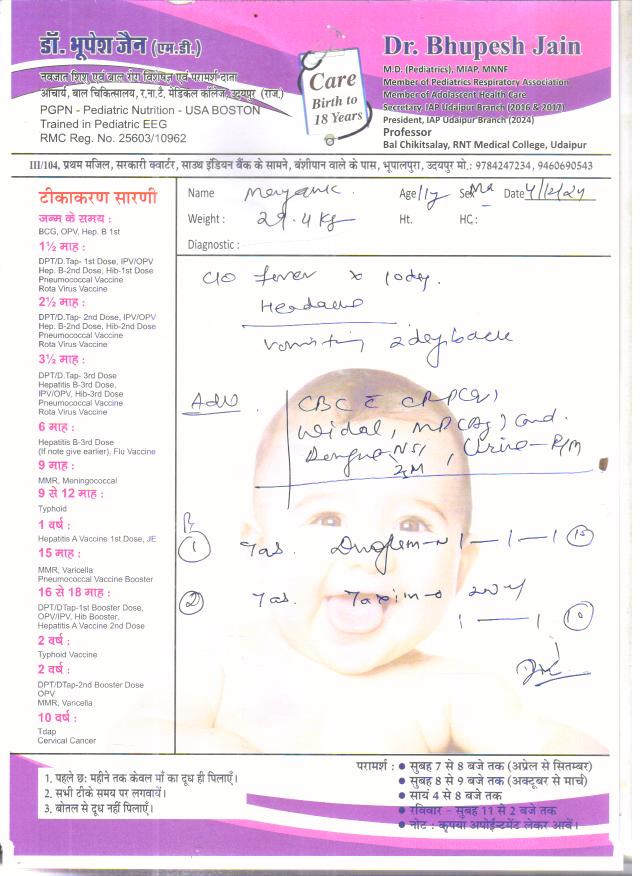 डॉ. भूपेश जैन (एम.डी.)
नवजात शिशु एवं बाल रोग विशेषज्ञ एवं परामर्श दाता
आचार्य, बाल चिकित्सालय, र.ना.टै. मेडिकल कॉलेज, उदयपुर (राज.)
PGPN - Pediatric Nutrition - USA BOSTON
Trained in Pediatric EEG
RMC Reg. No. 25603/10962
Care
Birth to
18 Years
Dr. Bhupesh Jain
M.D. (Pediatrics), MIAP, MNNF
Member of Pediatrics Respiratory Association
Member of Adolascent Health Care
Secretary, IAP Udaipur Branch (2016 & 2017)
President, IAP Udaipur Branch (2024)
Professor
Bal Chikitsalay, RNT Medical College, Udaipur
III/104, प्रथम मंजिल, सरकारी क्वार्टर, साउथ इंडियन बैंक के सामने, बंशीपान वाले के पास, भूपालपुरा, उदयपुर मो.: 9784247234, 9460690543
टीकाकरण सारणी
जन्म के समय :
BCG, OPV, Hep. B 1st
1½ माह :
DPT/D.Tap- 1st Dose, IPV/OPV
Hep. B-2nd Dose, Hib-1st Dose
Pneumococcal Vaccine
Rota Virus Vaccine
2½ माह :
DPT/D.Tap- 2nd Dose, IPV/OPV
Hep. B-2nd Dose, Hib-2nd Dose
Pneumococcal Vaccine
Rota Virus Vaccine
3½ माह :
DPT/D.Tap- 3rd Dose
Hepatitis B-3rd Dose,
IPV/OPV, Hib-3rd Dose
Pneumococcal Vaccine
Rota Virus Vaccine
6 माह :
Hepatitis B-3rd Dose
(If note give earlier), Flu Vaccine
9 माह :
MMR, Meningococcal
9 से 12 माह :
Typhoid
1 वर्ष :
Hepatitis A Vaccine 1st Dose, JE
15 माह :
MMR, Varicella
Pneumococcal Vaccine Booster
16 से 18 माह :
DPT/DTap-1st Booster Dose,
OPV/IPV, Hib Booster,
Hepatitis A Vaccine 2nd Dose
2 वर्ष :
Typhoid Vaccine
2 वर्ष :
DPT/DTap-2nd Booster Dose
OPV
MMR, Varicella
10 वर्ष :
Tdap
Cervical Cancer
Name Age 11y Sex Ma Date 4/12/24
Weight : 29.4 Kg Ht. HC :
Diagnostic :
C/O fever x 10 day.
Headache
Vomiting 2 day back
Adv
CBC c CRP(Q)
Widal, MP(Ag) Card.
Dengue NS1 , Urine - R/M
IgM
Rx
① Tab. 1 - 1 - 1 ⑮
② Tab. Taxim-o 200
1 - 1 ⑩
1. पहले छ: महीने तक केवल माँ का दूध ही पिलाएँ।
2. सभी टीके समय पर लगवायें।
3. बोतल से दूध नहीं पिलाएँ।
परामर्श : ● सुबह 7 से 8 बजे तक (अप्रेल से सितम्बर)
● सुबह 8 से 9 बजे तक (अक्टूबर से मार्च)
● सायं 4 से 8 बजे तक
● रविवार - सुबह 11 से 2 बजे तक
● नोट : कृपया अपोईन्टमेंट लेकर आवें।